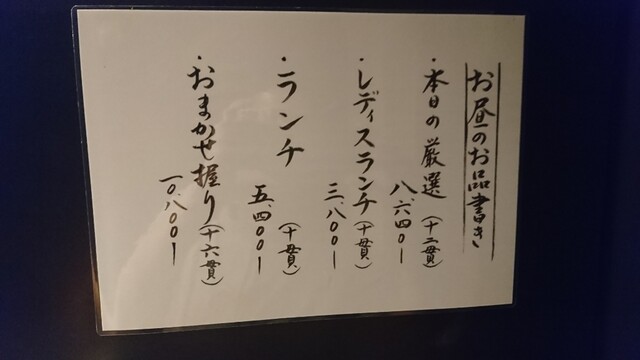 お昼のお品書き
・本日の厳選(十二貫)
八、六四〇ー
・レディスランチ(十貫)
三、八〇〇ー
・ランチ(十貫)
五、四〇〇ー
・おまかせ握り(十六貫)
一〇、八〇〇ー